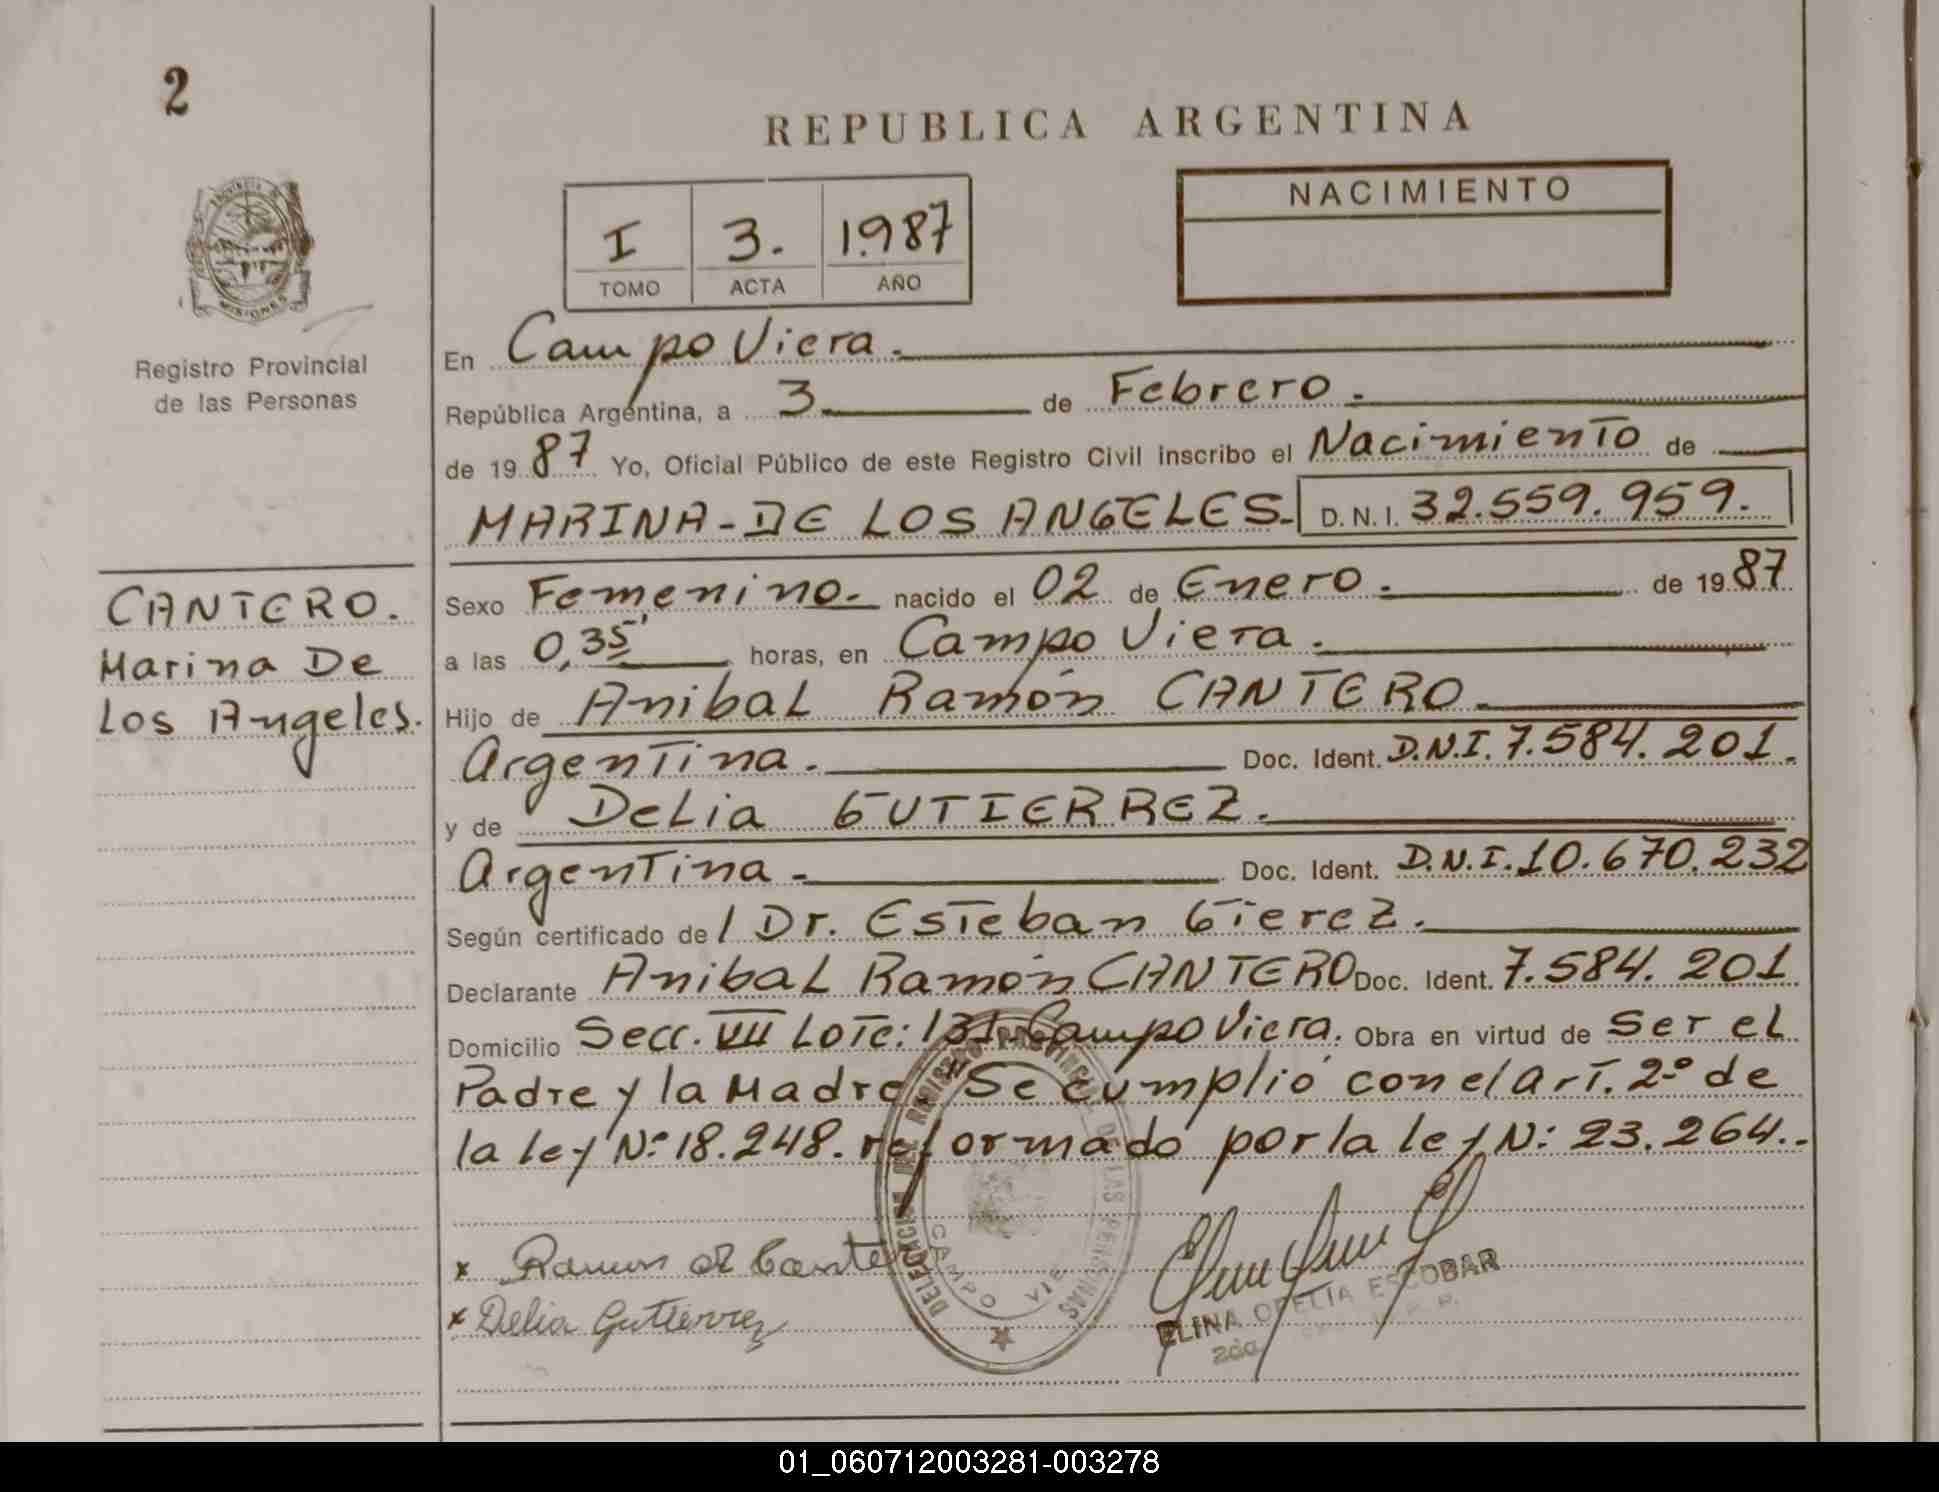 2
REPUBLICA ARGENTINA
PROVINCIA DE
MISIONES
I 3. 1.987
TOMO ACTA AÑO
NACIMIENTO
Registro Provincial
de las Personas
En Campo Viera.
República Argentina, a 3 de Febrero.
de 1987 Yo, Oficial Público de este Registro Civil inscribo el Nacimiento de
MARINA-DE LOS ANGELES. D.N.I. 32.559.959.
CANTERO.
Marina De
Los Angeles.
Sexo Femenino. nacido el 02 de Enero. de 1987
a las 0,35' horas, en Campo Viera.
Hijo de Anibal Ramón CANTERO.
Argentina. Doc. Ident. D.N.I. 7.584.201.
y de Delia GUTIERREZ.
Argentina. Doc. Ident. D.N.I. 10.670.232
Según certificado de l Dr. Esteban Gierez.
Declarante Anibal Ramón CANTERO Doc. Ident. 7.584.201
Domicilio Secc. VII Lote: 131-Campo Viera. Obra en virtud de ser el
Padre y la Madre. "Se cumplió con el art. 2º de
la ley Nº 18.248. reformado por la ley N: 23.264..
DELEGACION DEL REGISTRO PROVINCIAL DE LAS PERSONAS
CAMPO VIE
x Ramon Cante
x Delia Gutierrez
ELINA OFELIA ESCOBAR
2da.
01_060712003281-003278